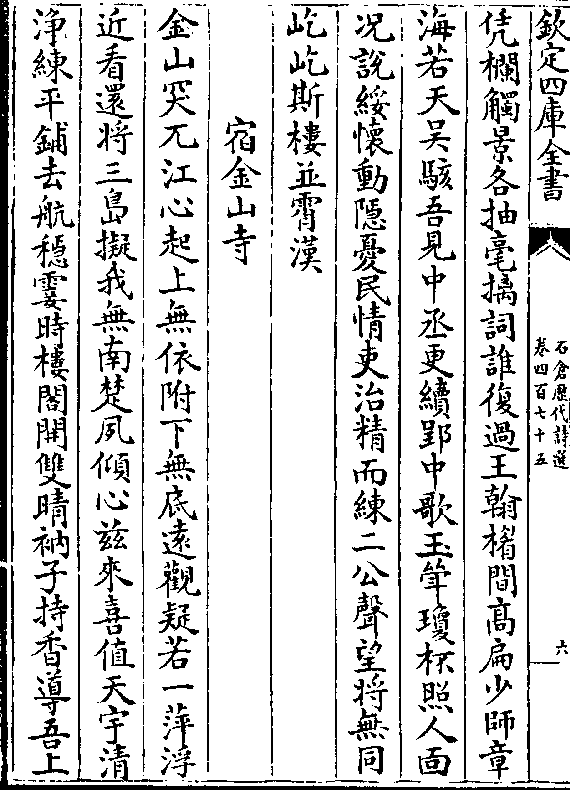 欽定四庫全書
石倉歷代詩選
卷四百七十五
六
凭欄觸景各抽毫摛詞誰復過王翰楣間髙扁少師章
海若天吳駭吾見中丞更續郢中歌玉筆瓊杯照人面
况說綏懷動隱憂民情吏治精而練二公聲望将無同
屹屹斯樓並霄漢
宿金山寺
金山突兀江心起上無依附下無底遠觀疑若一萍浮
近看還将三島擬我無南楚夙傾心兹來喜值天宇清
浄練平鋪去航穏霎時樓閣開雙晴衲子持香導吾上